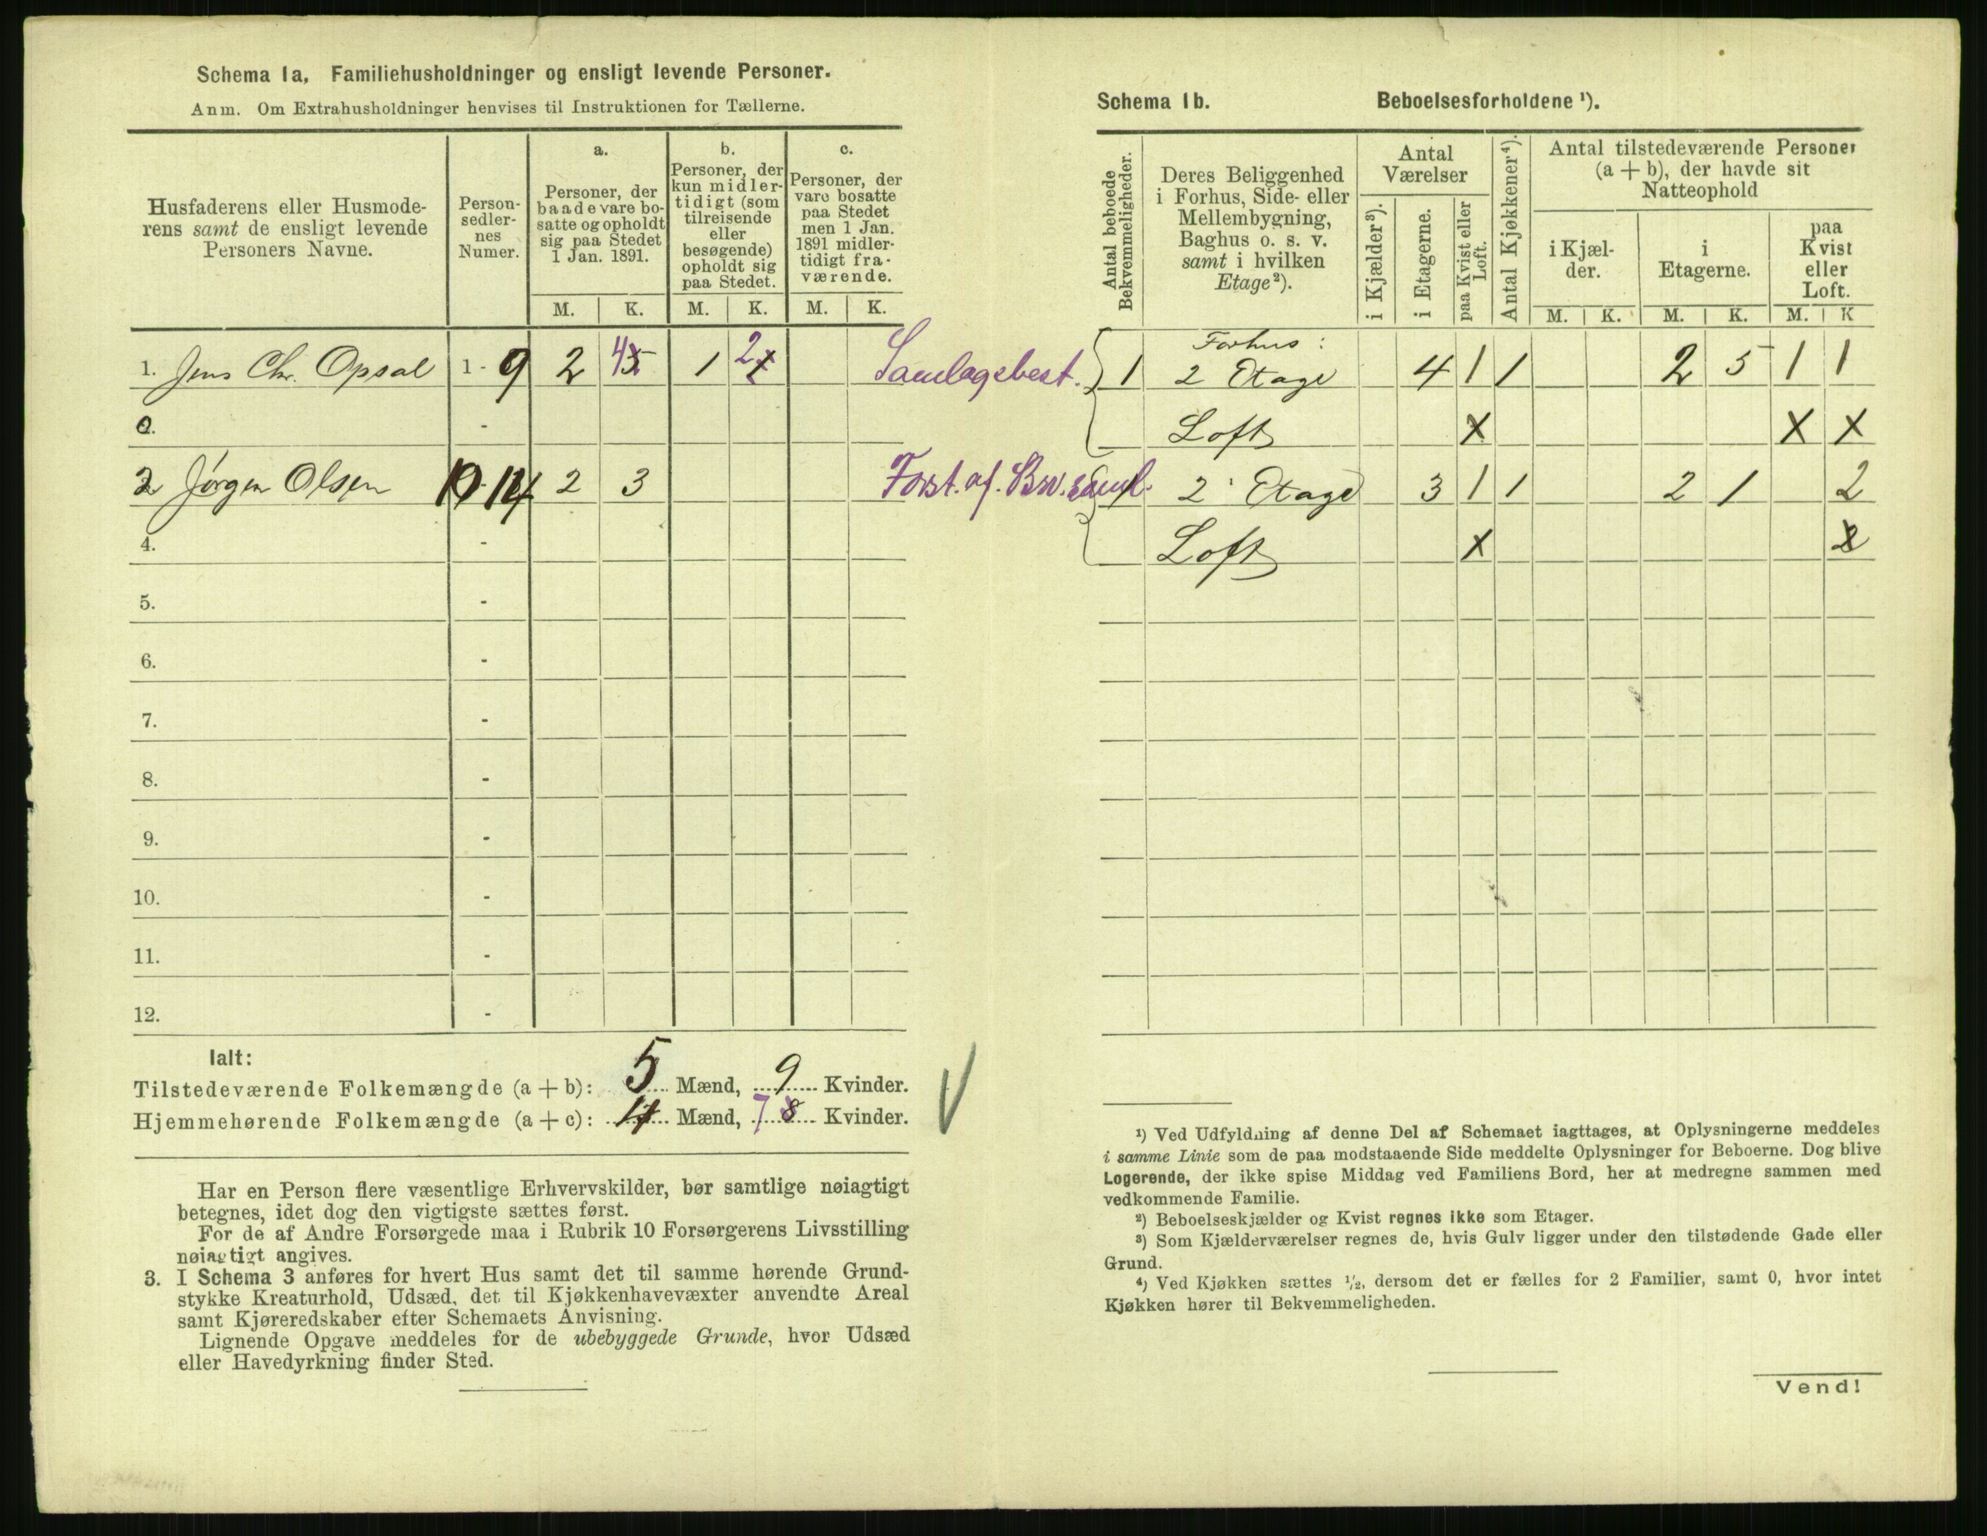 Schema 1a, Familiehusholdninger og ensligt levende Personer.
Anm. Om Extrahusholdninger henvises til Instruktionen for Tællerne.
Husfaderens eller Husmode-
rens samt de ensligt levende
Personers Navne.
Person-
sedler-
nes
Numer.
a.
Personer, der
baade vare bo-
satte og opholdt
sig paa Stedet
1 Jan. 1891.
b.
Personer, der
kun midler-
tidigt (som
tilreisende
eller
besøgende)
opholdt sig
paa Stedet.
c.
Personer, der
vare bosatte
paa Stedet
men 1 Jan.
1891 midler-
tidigt fra-
værende.
M. K. M. K. M. K.
1. Jens Chr. Opsal 1 - 9 2 4 5 1 2 Samlagsbest.
2. -
2 Jørgen Olsen 10 - 14 2 3 Forst. af. Brv. saml.
4. -
5. -
6. -
7. -
8. -
9. -
10. -
11. -
12. -
Ialt:
Tilstedeværende Folkemængde (a + b): 5 Mænd, 9 Kvinder.
Hjemmehørende Folkemængde (a + c): 4 Mænd, 7 8 Kvinder.
Har en Person flere væsentlige Erhvervskilder, bør samtlige nøiagtigt
betegnes, idet dog den vigtigste sættes først.
For de af Andre Forsørgede maa i Rubrik 10 Forsørgerens Livsstilling
nøiagtigt angives.
3. I Schema 3 anføres for hvert Hus samt det til samme hørende Grund-
stykke Kreaturhold, Udsæd, det til Kjøkkenhavevæxter anvendte Areal
samt Kjøreredskaber efter Schemaets Anvisning.
Lignende Opgave meddeles for de ubebyggede Grunde, hvor Udsæd
eller Havedyrkning finder Sted.
Schema 1b. Beboelsesforholdene ¹).
Antal beboede
Bekvemmeligheder.
Deres Beliggenhed
i Forhus, Side- eller
Mellembygning,
Baghus o. s. v.
samt i hvilken
Etage ²).
Antal
Værelser
i Kjælder ³).
i Etagerne.
paa Kvist eller
Loft.
Antal Kjøkkener ⁴).
Antal tilstedeværende Personer
(a + b), der havde sit
Natteophold
i Kjæl-
der.
i
Etagerne.
paa
Kvist
eller
Loft.
M. K. M. K. M. K
Forhus :
1 2 Etage 4 1 1 2 5 1 1
Loft x x x
1 2 Etage 3 1 1 2 1 2
Loft x
¹) Ved Udfyldning af denne Del af Schemaet iagttages, at Oplysningerne meddeles
i samme Linie som de paa modstaaende Side meddelte Oplysninger for Beboerne. Dog blive
Logerende, der ikke spise Middag ved Familiens Bord, her at medregne sammen med
vedkommende Familie.
²) Beboelseskjælder og Kvist regnes ikke som Etager.
³) Som Kjælderværelser regnes de, hvis Gulv ligger under den tilstødende Gade eller
Grund.
⁴) Ved Kjøkken sættes ½, dersom det er fælles for 2 Familier, samt 0, hvor intet
Kjøkken hører til Bekvemmeligheden.
Vend!